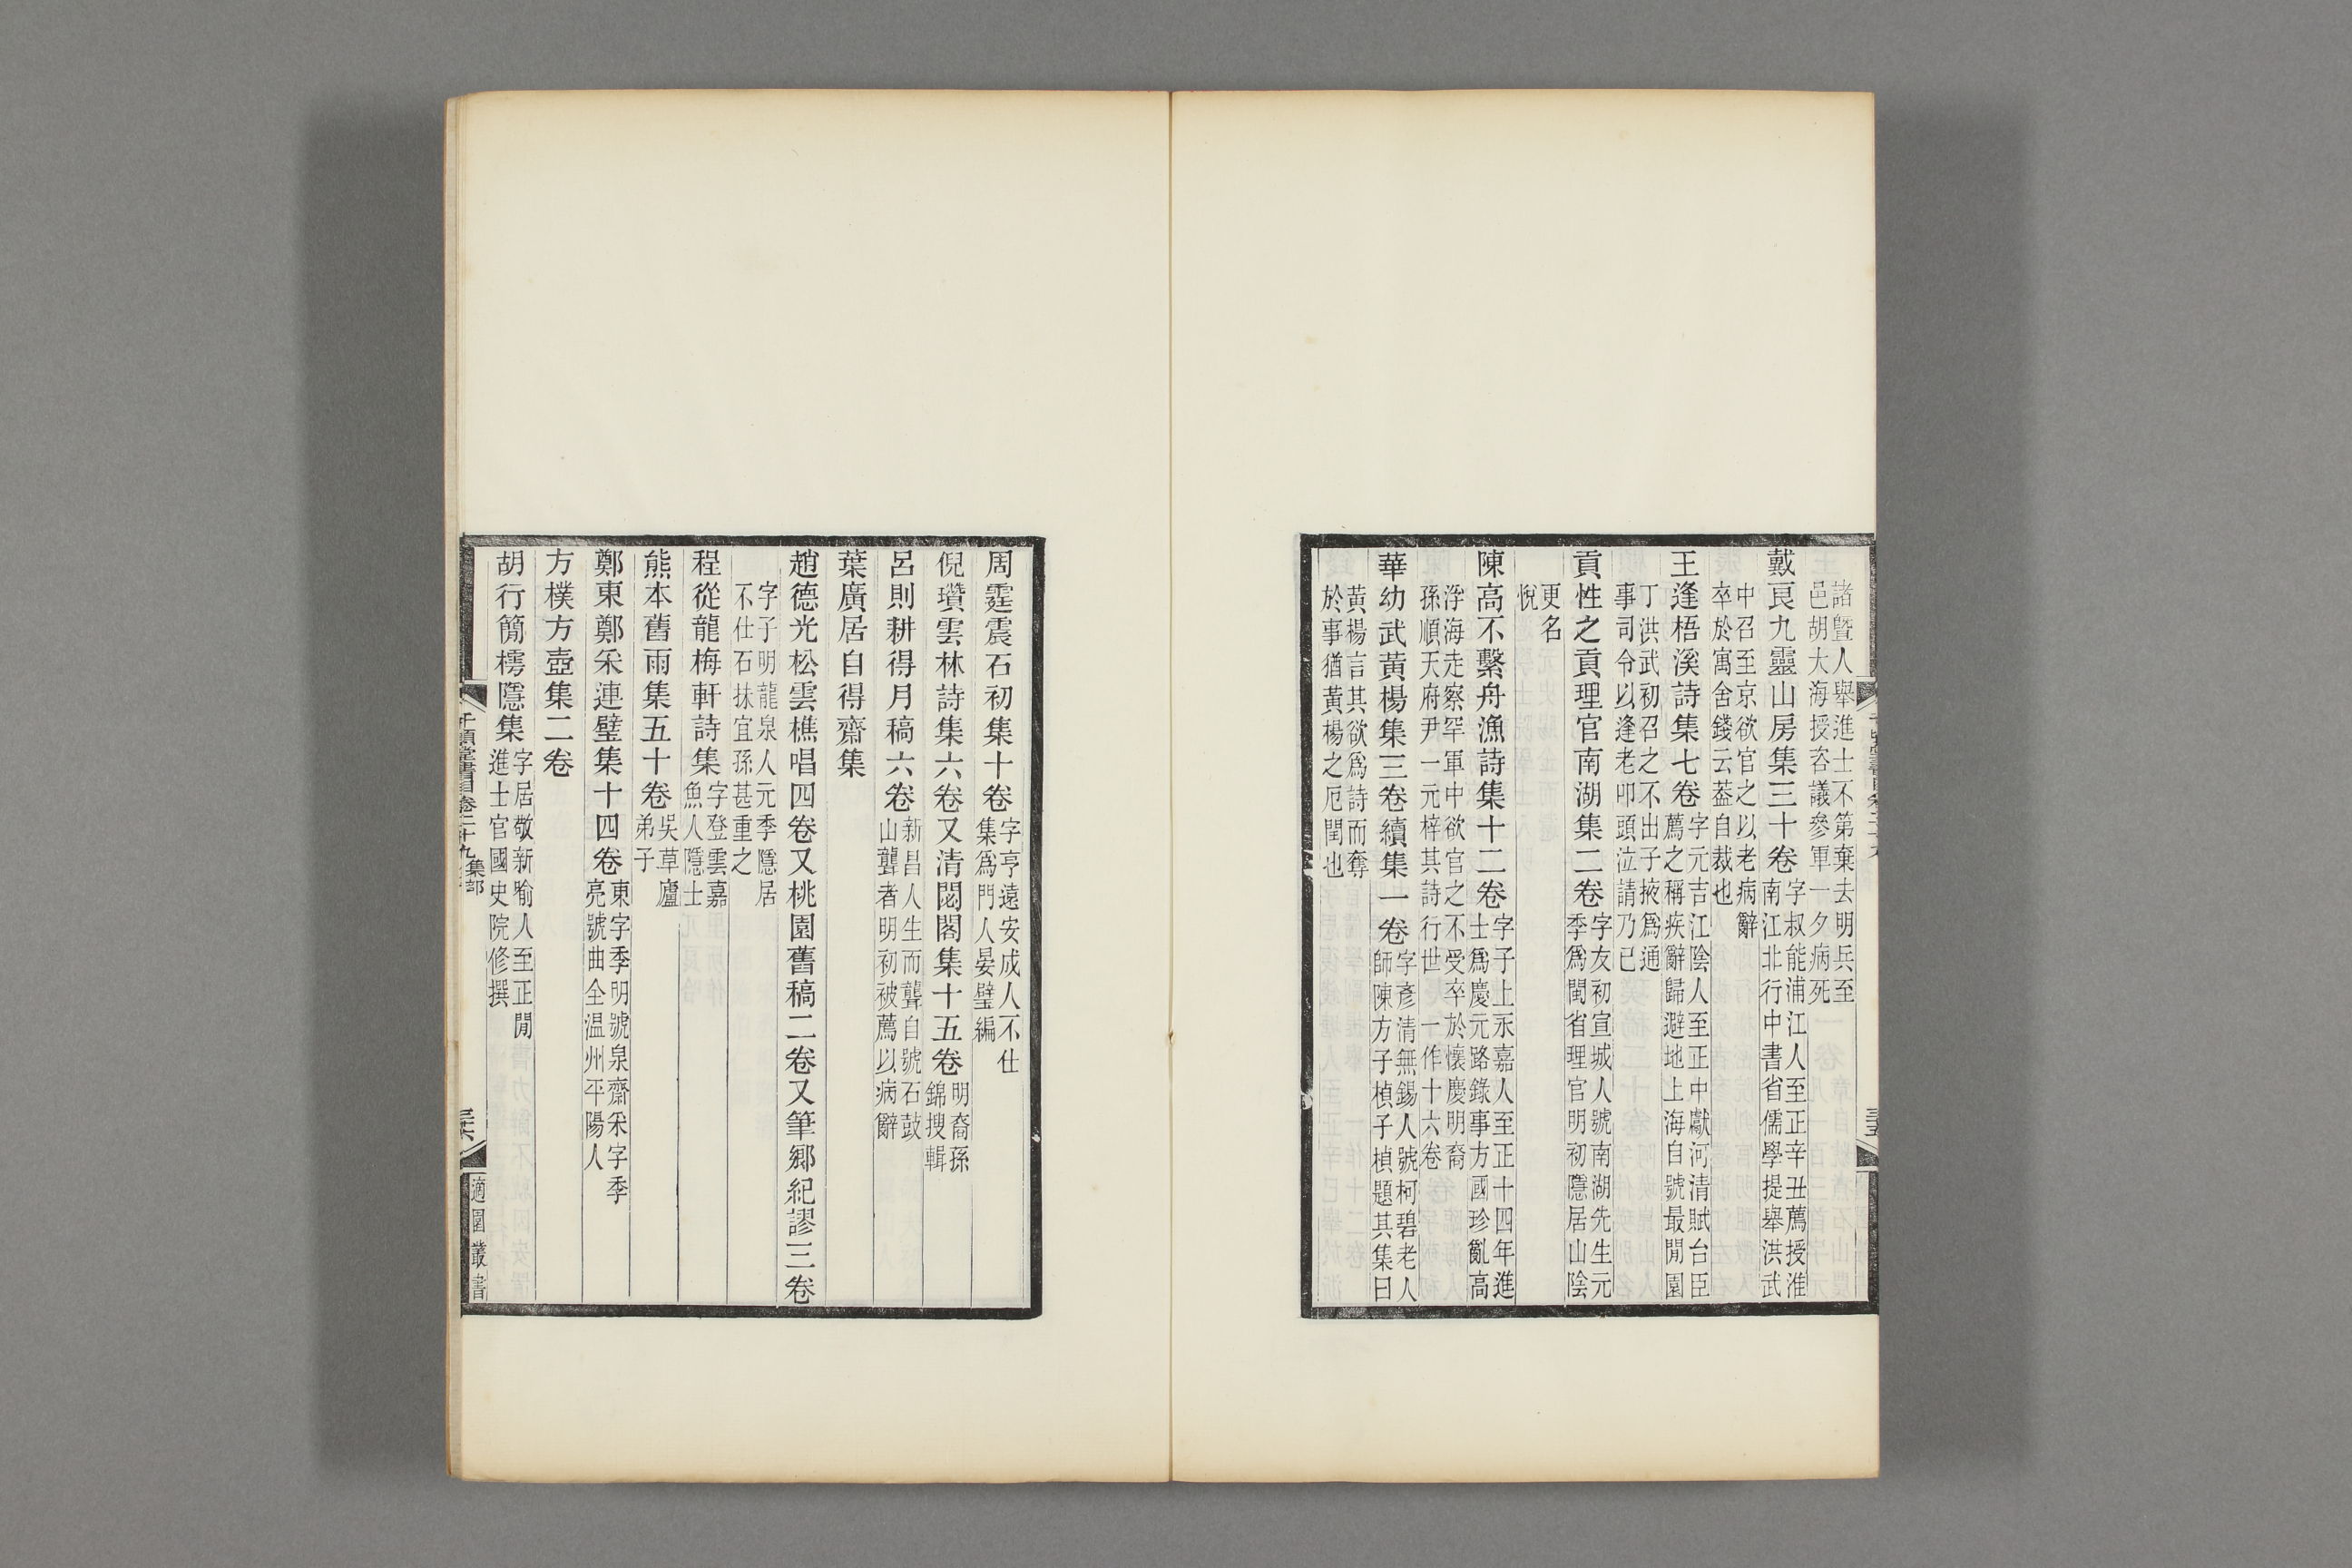 諸曁人舉進士不第棄去明兵至
邑胡大海授咨議參軍一夕病死
戴良九靈山房集三十卷字叔能浦江人至正辛丑薦授淮
南江北行中書省儒學提舉洪武
中召至京欲官之以老病辭
卒於寓舍錢云葢自裁也
王逢梧溪詩集七卷字元吉江陰人至正中獻河清賦台臣
薦之稱疾辭歸避地上海自號最閒園
丁洪武初召之不出子掖爲通
事司令以逢老叩頭泣請乃已
貢性之貢理官南湖集二卷字友初宣城人號南湖先生元
季爲閩省理官明初隱居山陰
更名
悅
陳高不繫舟漁詩集十二卷字子上永嘉人至正十四年進
士爲慶元路錄事方國珍亂高
浮海走察罕軍中欲官之不受卒於懷慶明裔
孫順天府尹一元梓其詩行世一作十六卷
華幼武黃楊集三卷續集一卷字彥清無錫人號柯碧老人
師陳方子楨子楨題其集曰
黃楊言其欲爲詩而奪
於事猶黃楊之厄閏也
周霆震石初集十卷字亨遠安成人不仕
集爲門人晏璧編
倪瓚雲林詩集六卷又清閟閣集十五卷明裔孫
錦搜輯
呂則耕得月稿六卷新昌人生而聾自號石鼓
山聾者明初被薦以病辭
葉廣居自得齋集
趙德光松雲樵唱四卷又桃園舊稿二卷又筆鄉紀謬三卷
字子明龍泉人元季隱居
不仕石抹宜孫甚重之
程從龍梅軒詩集字登雲嘉
魚人隱士
熊本舊雨集五十卷吳草廬
弟子
鄭東鄭采連璧集十四卷東字季明號泉齋采字季
亮號曲全温州平陽人
方樸方壺集二卷
胡行簡樗隱集字居敬新喻人至正閒
進士官國史院修撰
千頃堂書目卷二十九 集部
三十六
適園叢書